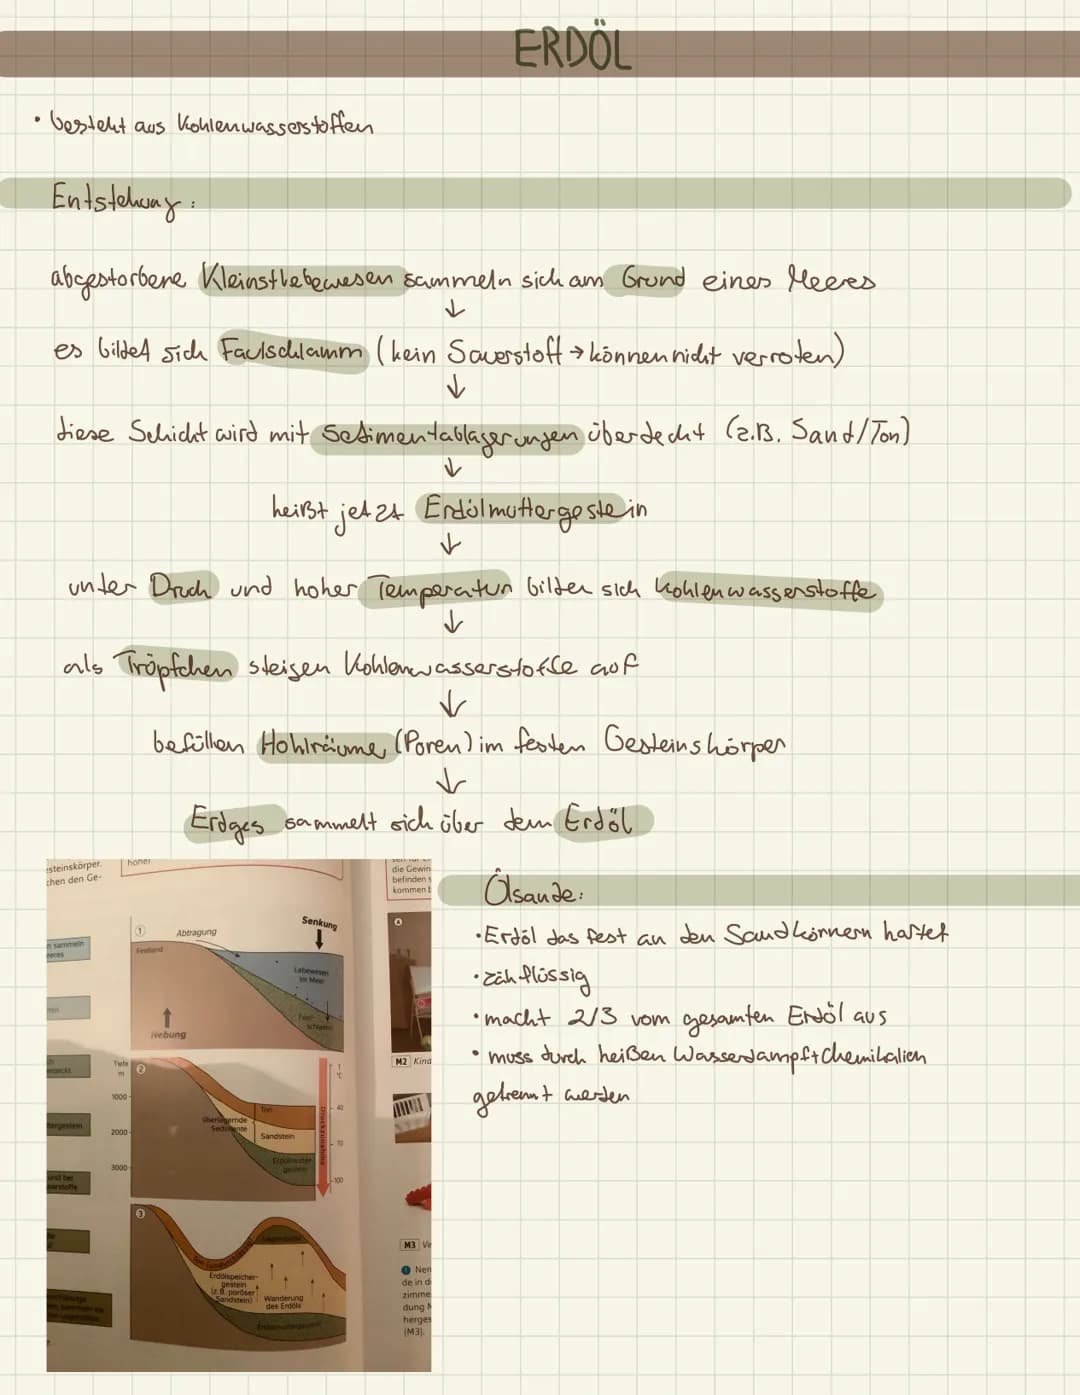 ERDÖL
• besteht aus Kohlenwasserstoffen
Entstehung:
abgestorbene Kleinstlebewesen sammeln sich am Grund eines Meeres
↓
es bildet sich Faulschlamm (kein Sauerstoff → können nicht verroten)
↓
diese Schicht wird mit Sedimentablagerungen überdeckt (z.B. Sand/Ton)
↓
heißt jetzt Erdölmuttergestein
↓
unter Druck und hoher Temperatur bilden sich Kohlenwasserstoffe
↓
als Tröpfchen steigen Kohlenwasserstoffe auf
↓
befüllen Hohlräume (Poren) im festen Gesteinskörper
↓
Erdges sammelt sich über dem Erdöl
esteinskörper.
chen den Ge-
hoher
die Gewin
befinden s
kommen b
n sammeln
eeres
deckt.
tergestein
und bei
①
Abtragung
Senkung
Festland
Lebewesen
im Meer
Faul-
schlamm
Hebung
Tiefe
m
②
1000
2000
3000
Ton
überlagernde
Sedimente
Sandstein
Erdölmutter-
gestein
Druckzunahme
°C
40
70
100
③
Erdölspeicher-
gestein
(z.B. poröser
Sandstein)
Wanderung
des Erdöls
Erdölmuttergestein
A
M2 Kind
M3 Ve
1 Nen
de in d
zimme
dung M
herges
(M3).
Ölsande:
• Erdöl das fest an den Sandkörnern haftet
• zähflüssig
• macht 2/3 vom gesamten Erdöl aus
• muss durch heißen Wasserdampf + Chemikalien
getrennt werden